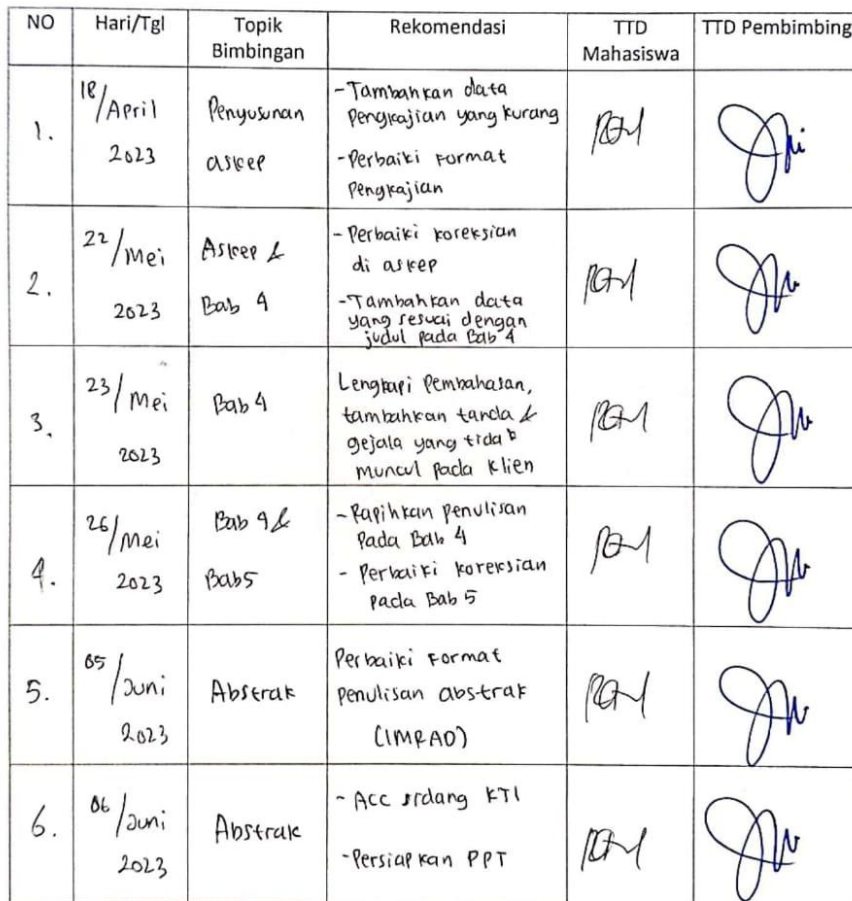 NO Hari/Tgl Topik Bimbingan Rekomendasi TTD Mahasiswa TTD Pembimbing
1. 18/April 2023
Penyusunan
askep
- Tambahkan data
Pengkajian yang kurang
- Perbaiki Format
Pengkajian
2. 22/Mei 2023
Askep &
Bab 4
- Perbaiki koreksian
di askep
- Tambahkan data
yang sesuai dengan
judul pada Bab 4
3. 23/Mei 2023
Bab 4
Lengkapi Pembahasan,
tambahkan tanda &
gejala yang tidak
muncul pada klien
4. 26/Mei 2023
Bab 4 &
Bab 5
- Rapihkan penulisan
Pada Bab 4
- Perbaiki koreksian
pada Bab 5
5. 05/Juni 2023
Abstrak
Perbaiki Format
Penulisan abstrak
(IMRAD)
6. 06/Juni 2023
Abstrak
- Acc sidang KTI
- Persiapkan PPT